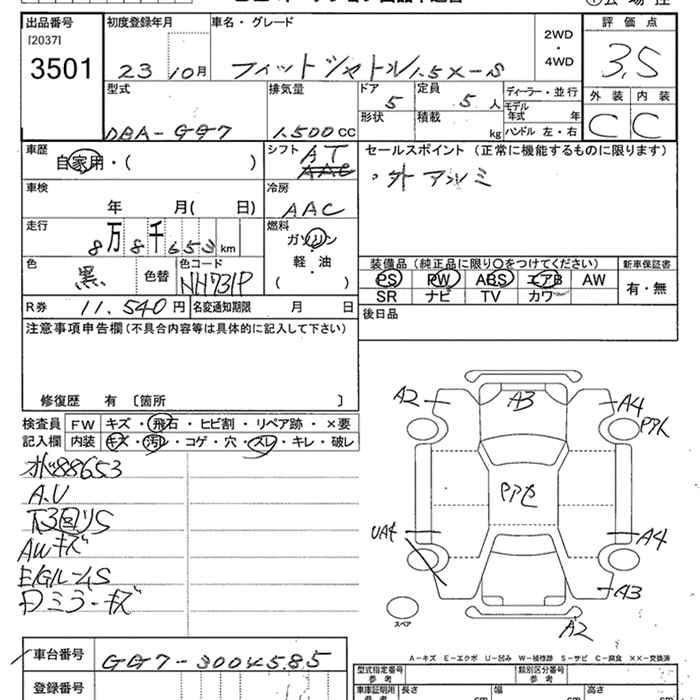 出品番号 初度登録年月 車名・グレード 評価点
[2037]
3501 23 10月 フィットシャトル1.5X-S 2WD・4WD 3.5
型式 排気量 ドア 定員 ディーラー・並行 外装 内装
DBA-GG7 1.500cc 5 5人 モデル年式 年 C C
形状 積載 kg ハンドル 左・右
車歴 シフト セールスポイント(正常に機能するものに限ります)
自家用・( ) AT
AAC
・外アルミ
車検 冷房
年 月( 日) AAC
走行 燃料
8万8千653km ガソリン
軽・油
( )
色 色替 色コード
黒 NH731P
装備品(純正品に限り○をつけてください) 新車保証書
PS PW ABS エアB AW 有・無
SR ナビ TV カワ
R券 11.540円 名変通知期限 月 日
後日品
注意事項申告欄(不具合内容等は具体的に記入して下さい)
修復歴 有 〔箇所 〕
検査員 FW キズ・飛石・ヒビ割・リペア跡・×要
記入欄 内装 キズ・汚レ・コゲ・穴・スレ・キレ・破レ
88653
A.U
下3回リS
AWキズ
E/GルームS
Dミラーキズ
A2 A3 A4
UA4 A4
A3
A2
スペア
A-キズ E-エクボ U-凹み W-補修跡 S-サビ C-腐食 ××-交換済
車台番号 GG7-3004585
登録番号
型式指定番号 参考 類別区分番号 参考
車車証明用 参考 長さ cm 幅 cm 高さ cm